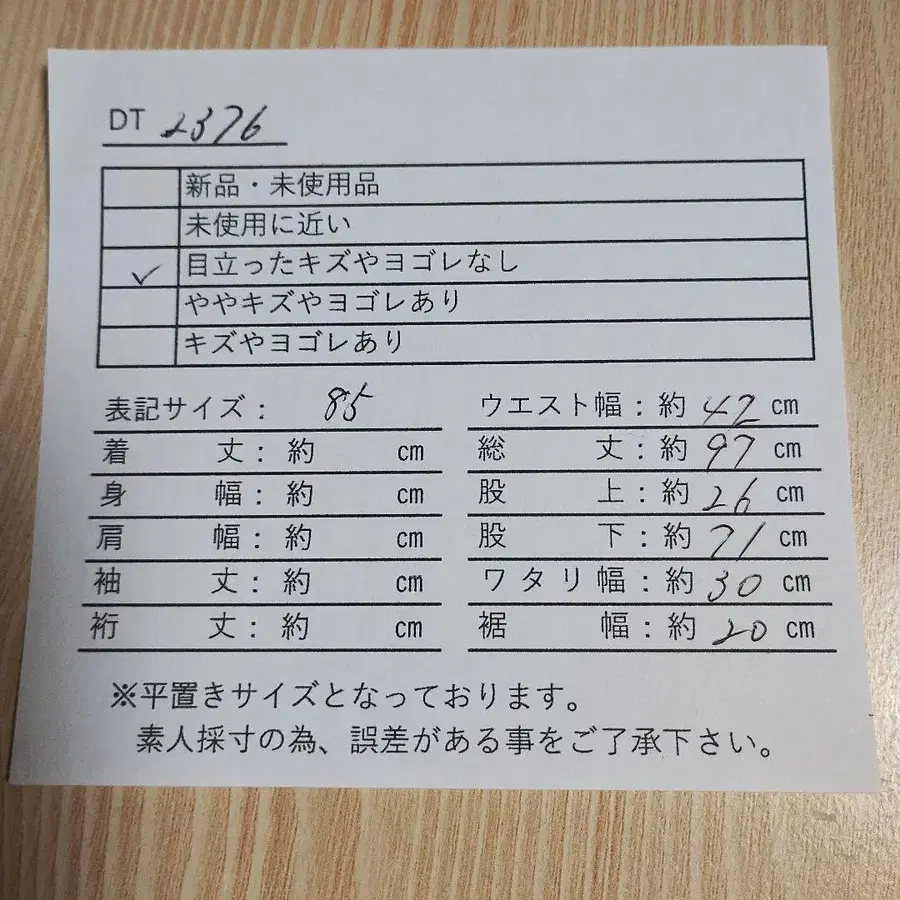 DT 2376
新品・未使用品
未使用に近い
✓ 目立ったキズやヨゴレなし
ややキズやヨゴレあり
キズやヨゴレあり
表記サイズ： 85
着丈：約 cm
身幅：約 cm
肩幅：約 cm
袖丈：約 cm
裄丈：約 cm
ウエスト幅：約 42 cm
総丈：約 97 cm
股上：約 26 cm
股下：約 71 cm
ワタリ幅：約 30 cm
裾幅：約 20 cm
※平置きサイズとなっております。
素人採寸の為、誤差がある事をご了承下さい。